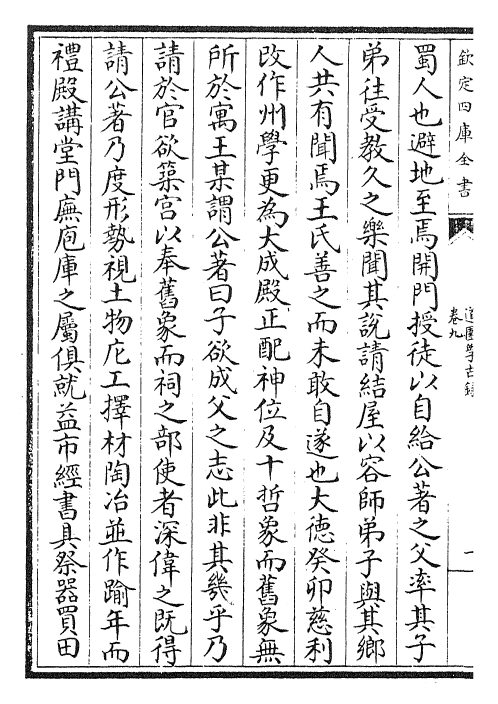 欽定四庫全書
道園學古録
卷九
一
蜀人也避地至焉開門授徒以自給公著之父率其子
弟往受教久之樂聞其說請結屋以容師弟子與其鄉
人共有聞焉王氏善之而未敢自遂也大德癸卯慈利
改作州學更為大成殿正配神位及十哲象而舊象無
所於寓王某謂公著曰子欲成父之志此非其幾乎乃
請於官欲築宮以奉舊象而祠之部使者深偉之既得
請公著乃度形勢視土物庀工擇材陶冶並作踰年而
禮殿講堂門廡庖庫之屬俱就益市經書具祭器買田